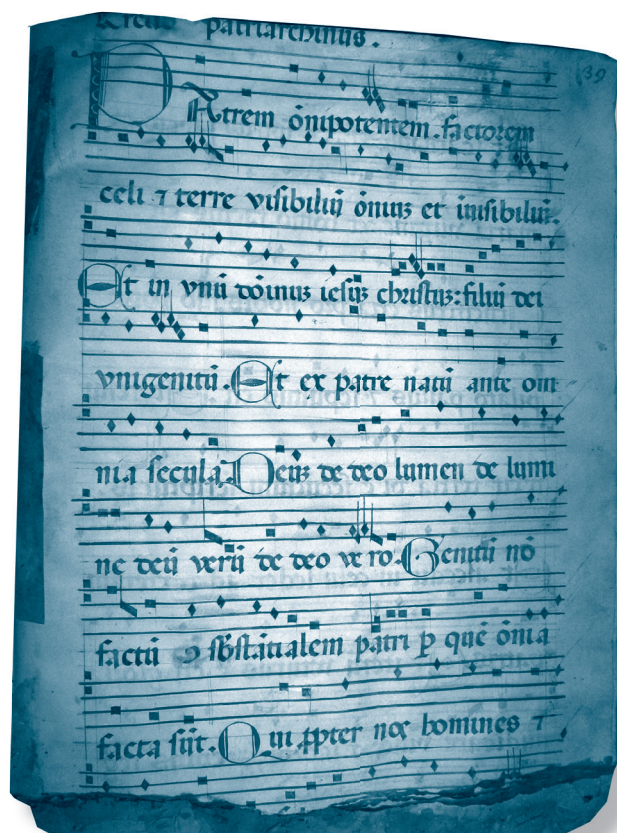 Credo patriarchinus.
39
Patrem õnipotentem. factorem
celi ⁊ terre visibiliũ õniuꝫ et ĩuisibiliũ.
Et in vnũ dõinuꝫ iesuꝫ christuꝫ: filiũ dei
vnigenitũ. Et ex patre natũ ante om
nia secula. Deuꝫ de deo lumen de lumi
ne deũ verũ de deo vero. Genitũ nõ
factũ ꝯsbstãtialem patri ꝑ quẽ õnia
facta sũt. Qui ꝓpter nos homines ⁊